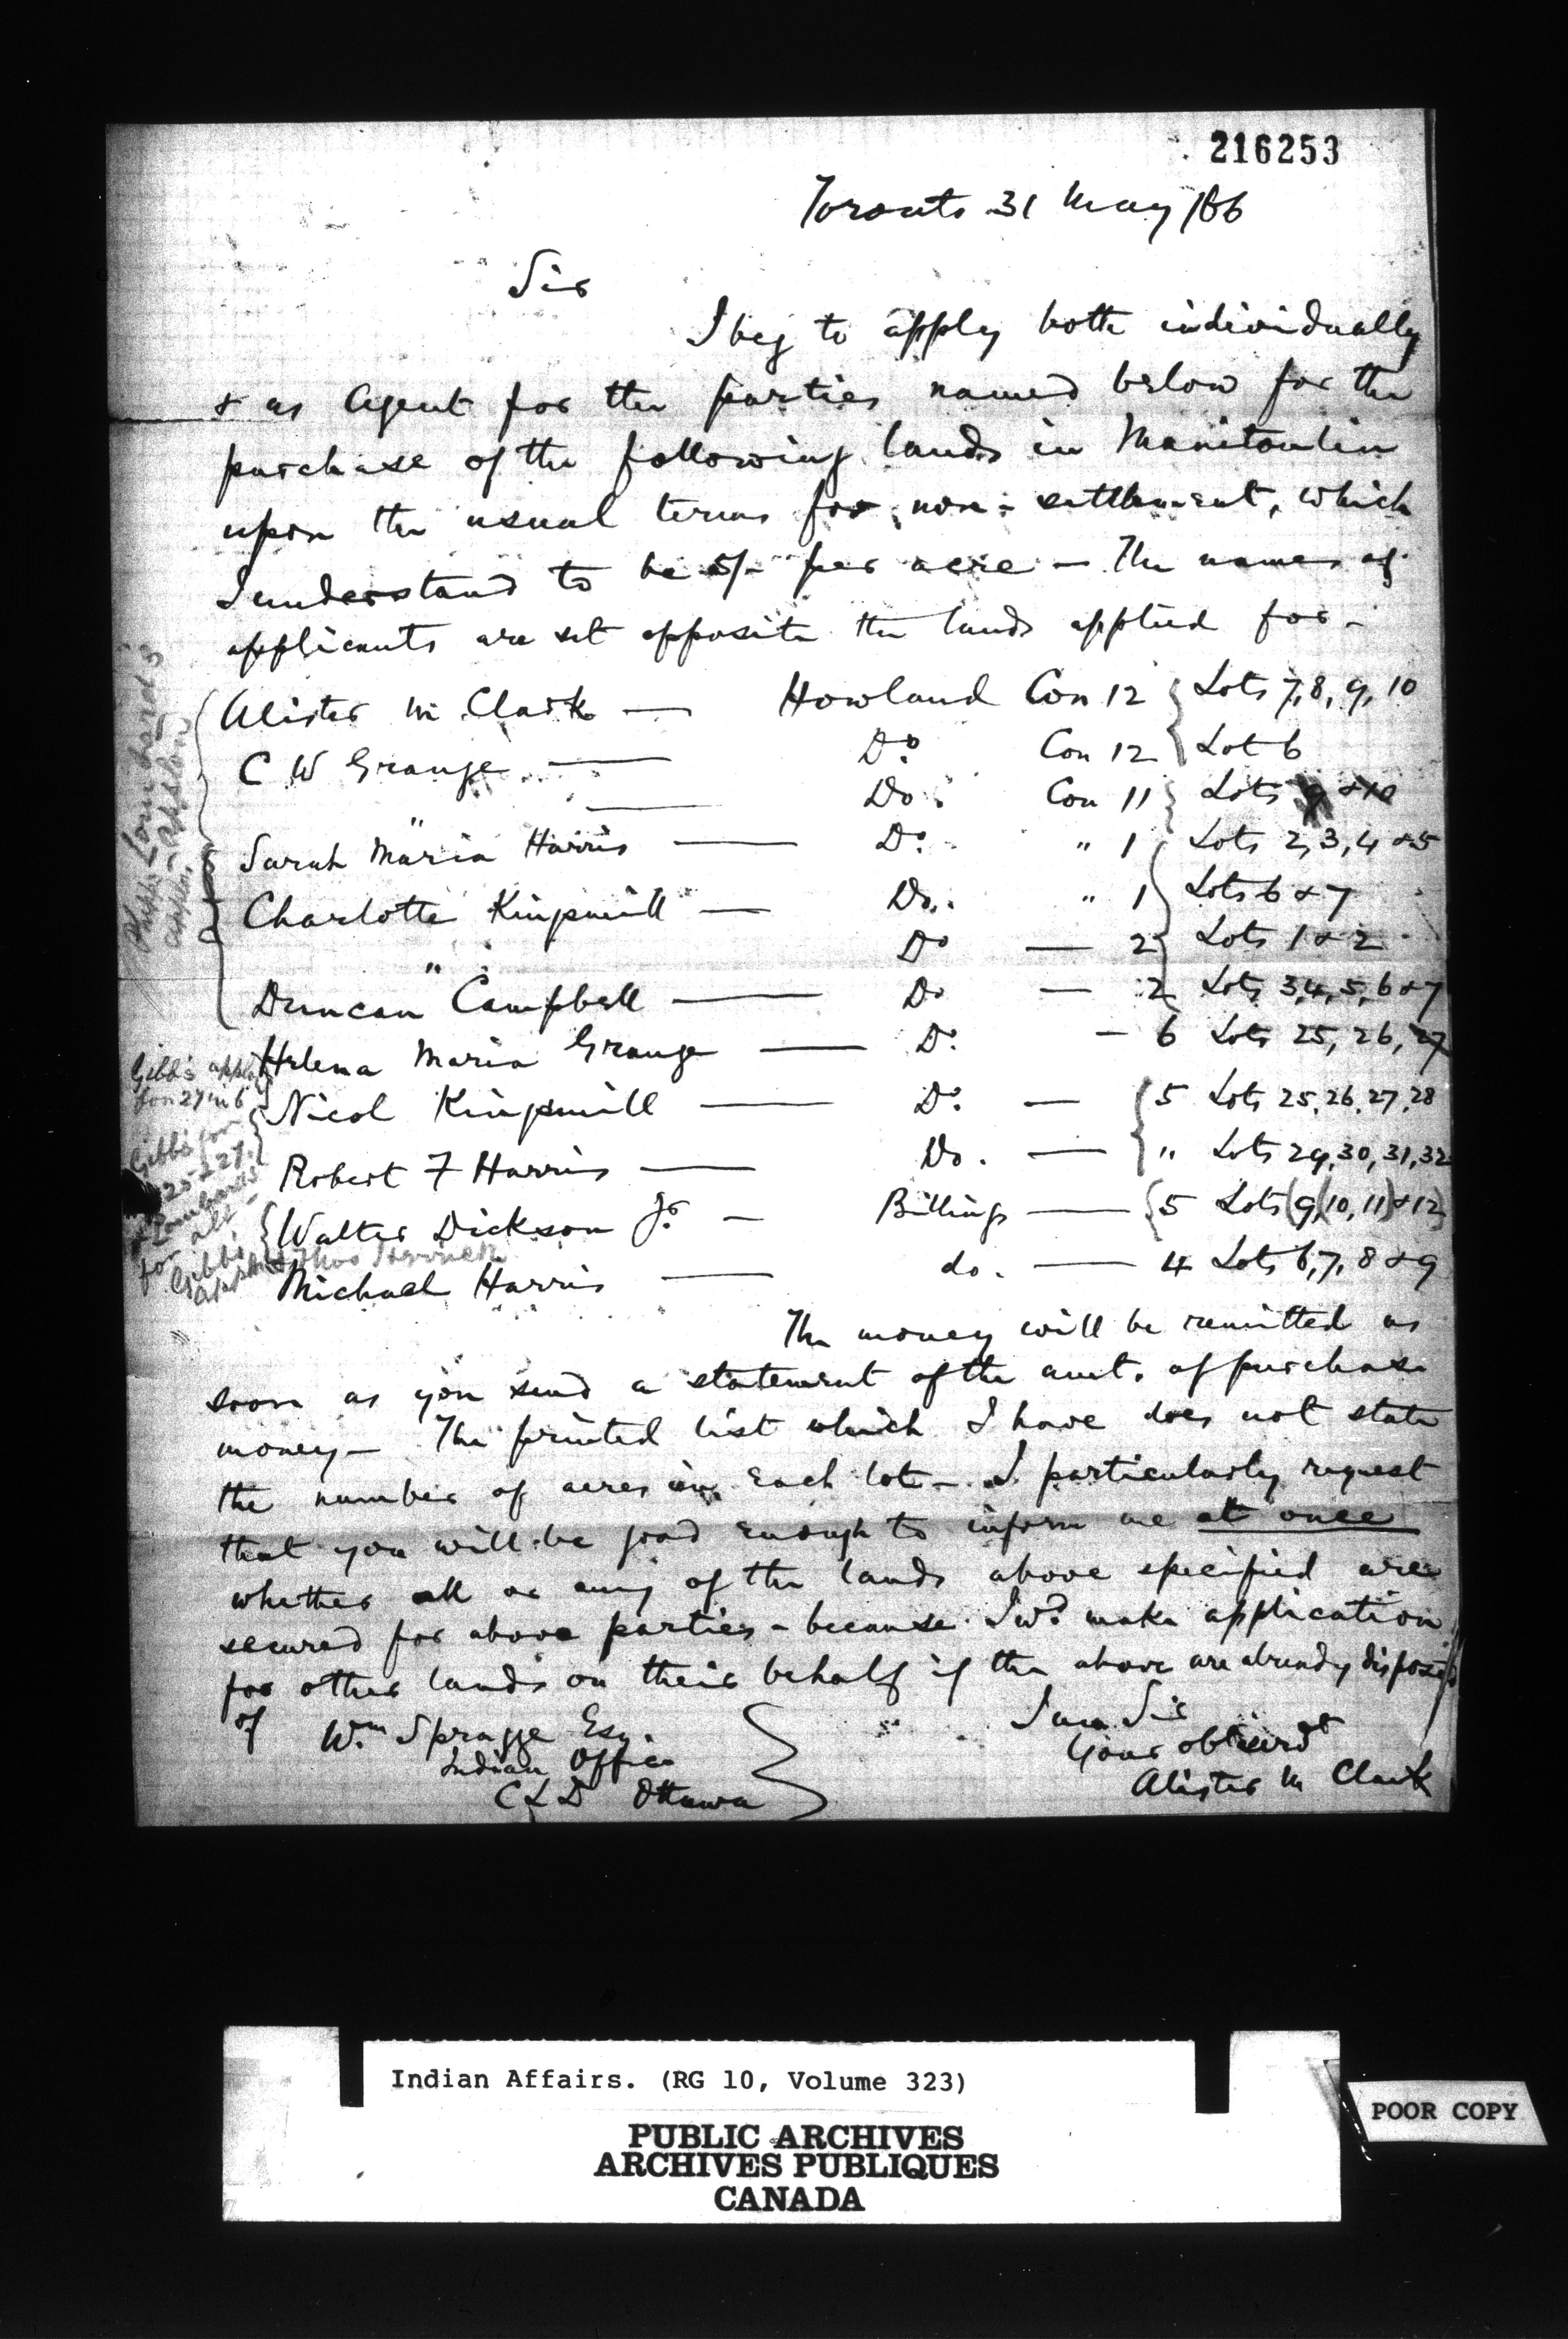 216253
Toronto 31 May /66
Sir
I beg to apply both individually
& as Agent for the parties named below for the
purchase of the following lands in Manitoulin
upon the usual terms for non-settlement, which
I understand to be 5/- per acre - The names of
applicants are set opposite the lands applied for -
Alister M Clark — Howland Con 12 Lots 7, 8, 9, 10
C W Grange — Do Con 12 Lot 6
" — Do Con 11 Lots 9 & 10
Sarah Maria Harris — Do " 1 Lots 2, 3, 4 & 5
Charlotte Kingsmill — Do " 1 Lots 6 & 7
" Do — 2 Lots 1 & 2
Duncan Campbell — Do — 2 Lots 3, 4, 5, 6 & 7
Helena Maria Grange — Do - 6 Lots 25, 26, 27
Nicol Kingsmill — Do — 5 Lots 25, 26, 27, 28
Robert F Harris — Do. — " Lots 29, 30, 31, 32
Walter Dickson Jr. — Billings — 5 Lots (9, (10, 11) & 12)
Michael Harris — do. — 4 Lots 6, 7, 8 & 9
Gibb's appln
for 27 in 6
Gibbs for
25 & 27
for
Gibbs
appln
Thos
The money will be remitted as
soon as you send a statement of the amt. of purchase
money - The printed list which I have does not state
the number of acres in each lot - I particularly request
that you will be good enough to inform me at once
whether all or any of the lands above specified are
secured for above parties - because I wd. make application
for other lands on their behalf if the above are already disposed
of
I am Sir
Your obt servt
Alister M Clark
Wm Spragge Esq.
Indian Office
C L D Ottawa
Indian Affairs. (RG 10, Volume 323)
PUBLIC ARCHIVES
ARCHIVES PUBLIQUES
CANADA
POOR COPY